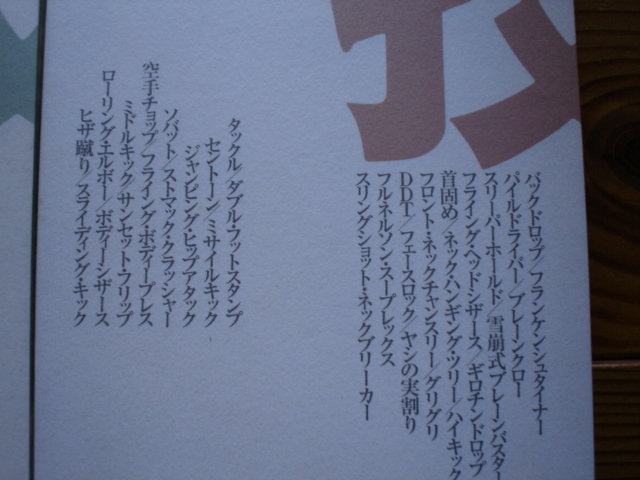 技
バックドロップ/フランケンシュタイナー
パイルドライバー/ブレーンクロー
スリーパーホールド/雪崩式ブレーンバスター
フライング・ヘッドシザース/ギロチンドロップ
首固め/ネック・ハンギング・ツリー/ハイキック
フロント・ネックチャンスリー/グリグリ
DDT/フェースロック/ヤシの実割り
フルネルソン・スープレックス
スリングショット・ネックブリーカー
タックル/ダブル・フットスタンプ
セントーン/ミサイルキック
ジャンピング・ヒップアタック
ソバット/ストマック・クラッシャー
空手チョップ/フライング・ボディープレス
ミドルキック/サンセット・フリップ
ローリング・エルボー/ボディーシザース
ヒザ蹴り/スライディング・キック